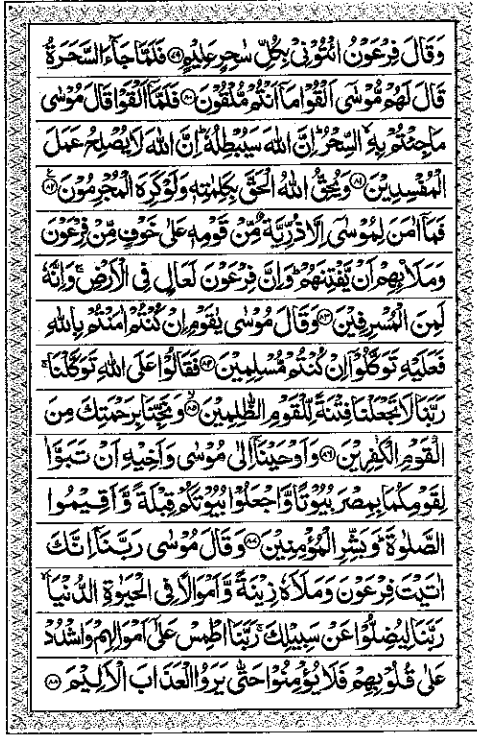 وَقَالَ فِرْعَوْنُ ائْتُوْنِیْ بِكُلِّ سٰحِرٍ عَلِیْمٍ ﴿۷۹﴾ فَلَمَّا جَآءَ السَّحَرَةُ
قَالَ لَهُمْ مُّوْسٰۤی اَلْقُوْا مَاۤ اَنْتُمْ مُّلْقُوْنَ ﴿۸۰﴾ فَلَمَّاۤ اَلْقَوْا قَالَ مُوْسٰی
مَا جِئْتُمْ بِهِ ۙ السِّحْرُ ؕ اِنَّ اللّٰهَ سَیُبْطِلُهٗ ؕ اِنَّ اللّٰهَ لَا یُصْلِحُ عَمَلَ
الْمُفْسِدِیْنَ ﴿۸۱﴾ وَیُحِقُّ اللّٰهُ الْحَقَّ بِكَلِمٰتِهٖ وَلَوْ كَرِهَ الْمُجْرِمُوْنَ ﴿۸۲﴾
فَمَاۤ اٰمَنَ لِمُوْسٰۤی اِلَّا ذُرِّیَّةٌ مِّنْ قَوْمِهٖ عَلٰی خَوْفٍ مِّنْ فِرْعَوْنَ
وَمَلَا۟ئِهِمْ اَنْ یَّفْتِنَهُمْ ؕ وَاِنَّ فِرْعَوْنَ لَعَالٍ فِی الْاَرْضِ ۚ وَاِنَّهٗ
لَمِنَ الْمُسْرِفِیْنَ ﴿۸۳﴾ وَقَالَ مُوْسٰی یٰقَوْمِ اِنْ كُنْتُمْ اٰمَنْتُمْ بِاللّٰهِ
فَعَلَیْهِ تَوَكَّلُوْۤا اِنْ كُنْتُمْ مُّسْلِمِیْنَ ﴿۸۴﴾ فَقَالُوْا عَلَی اللّٰهِ تَوَكَّلْنَا ۚ
رَبَّنَا لَا تَجْعَلْنَا فِتْنَةً لِّلْقَوْمِ الظّٰلِمِیْنَ ﴿۸۵﴾ وَنَجِّنَا بِرَحْمَتِكَ مِنَ
الْقَوْمِ الْكٰفِرِیْنَ ﴿۸۶﴾ وَاَوْحَیْنَاۤ اِلٰی مُوْسٰی وَاَخِیْهِ اَنْ تَبَوَّاٰ
لِقَوْمِكُمَا بِمِصْرَ بُیُوْتًا وَّاجْعَلُوْا بُیُوْتَكُمْ قِبْلَةً وَّاَقِیْمُوا
الصَّلٰوةَ ؕ وَبَشِّرِ الْمُؤْمِنِیْنَ ﴿۸۷﴾ وَقَالَ مُوْسٰی رَبَّنَاۤ اِنَّكَ
اٰتَیْتَ فِرْعَوْنَ وَمَلَاَهٗ زِیْنَةً وَّاَمْوَالًا فِی الْحَیٰوةِ الدُّنْیَا ۙ
رَبَّنَا لِیُضِلُّوْا عَنْ سَبِیْلِكَ ۚ رَبَّنَا اطْمِسْ عَلٰۤی اَمْوَالِهِمْ وَاشْدُدْ
عَلٰی قُلُوْبِهِمْ فَلَا یُؤْمِنُوْا حَتّٰی یَرَوُا الْعَذَابَ الْاَلِیْمَ ﴿۸۸﴾